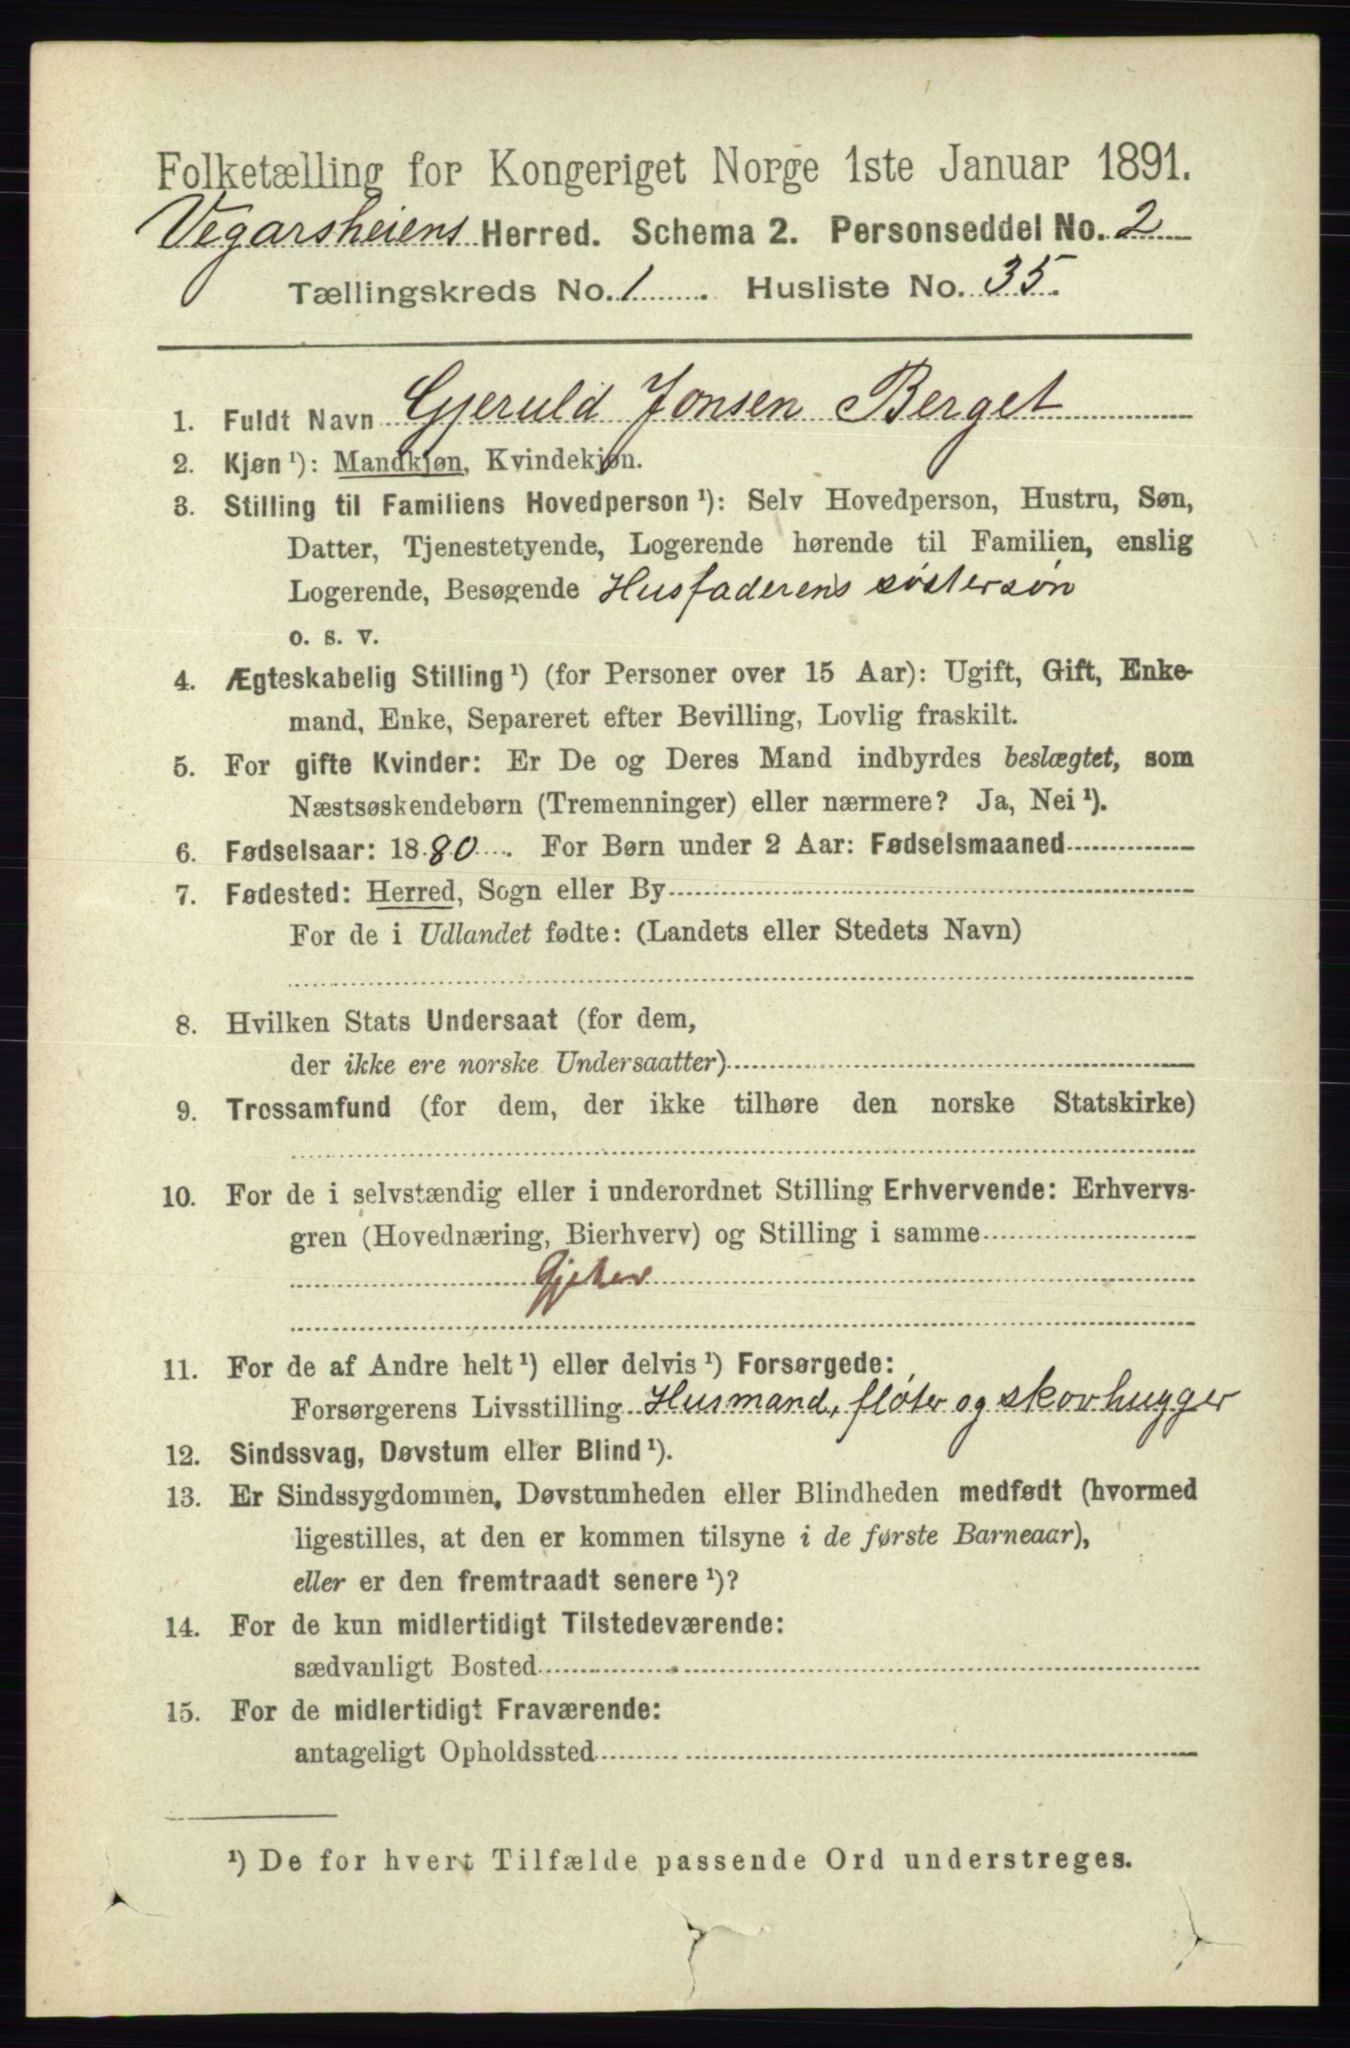 Folketælling for Kongeriget Norge 1ste Januar 1891.
Vegarsheiens Herred. Schema 2. Personseddel No. 2
Tællingskreds No. 1. Husliste No. 35.
1. Fuldt Navn Gjeruld Jonsen Berget
2. Kjøn¹): Mandkjøn, Kvindekjøn.
3. Stilling til Familiens Hovedperson¹): Selv Hovedperson, Hustru, Søn,
Datter, Tjenestetyende, Logerende hørende til Familien, enslig
Logerende, Besøgende Husfaderens søstersøn
o. s. v.
4. Ægteskabelig Stilling¹) (for Personer over 15 Aar): Ugift, Gift, Enke-
mand, Enke, Separeret efter Bevilling, Lovlig fraskilt.
5. For gifte Kvinder: Er De og Deres Mand indbyrdes beslægtet, som
Næstsøskendebørn (Tremenninger) eller nærmere? Ja, Nei¹).
6. Fødselsaar: 1880. For Børn under 2 Aar: Fødselsmaaned
7. Fødested: Herred, Sogn eller By
For de i Udlandet fødte: (Landets eller Stedets Navn)
8. Hvilken Stats Undersaat (for dem,
der ikke ere norske Undersaatter)
9. Trossamfund (for dem, der ikke tilhøre den norske Statskirke)
10. For de i selvstændig eller i underordnet Stilling Erhvervende: Erhvervs-
gren (Hovednæring, Bierhverv) og Stilling i samme
Gjeter
11. For de af Andre helt¹) eller delvis¹) Forsørgede:
Forsørgerens Livsstilling Husmand, fløter og skovhugger
12. Sindssvag, Døvstum eller Blind¹).
13. Er Sindssygdommen, Døvstumheden eller Blindheden medfødt (hvormed
ligestilles, at den er kommen tilsyne i de første Barneaar),
eller er den fremtraadt senere¹)?
14. For de kun midlertidigt Tilstedeværende:
sædvanligt Bosted
15. For de midlertidigt Fraværende:
antageligt Opholdssted
¹) De for hvert Tilfælde passende Ord understreges.